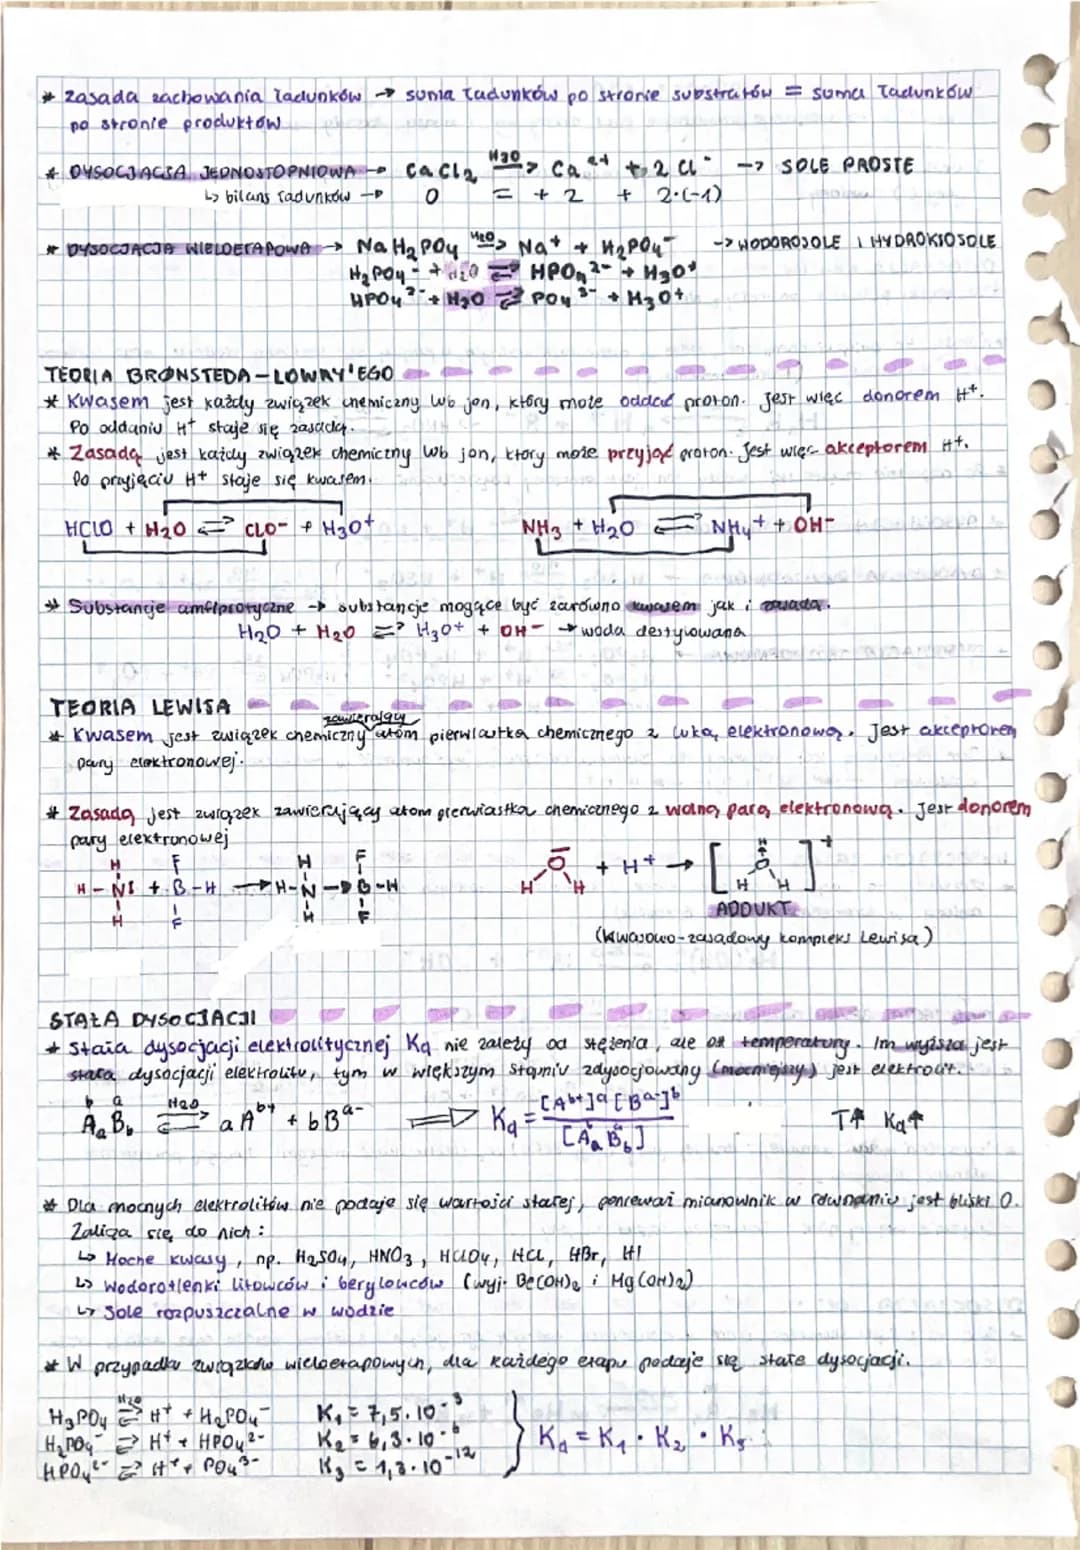 * Zasada zachowania ładunków → suma ładunków po stronie substratów = suma ładunków
po stronie produktów
* DYSOCJACJA JEDNOSTOPNIOWA → CaCl₂ —H₂O→ Ca²⁺ + 2Cl⁻ → SOLE PROSTE
↳ bilans ładunków → 0 = +2 + 2·(-1)
* DYSOCJACJA WIELOETAPOWA → NaH₂PO₄ —H₂O→ Na⁺ + H₂PO₄⁻ → WODOROSOLE I HYDROKSOSOLE
H₂PO₄⁻ + H₂O ⇄ HPO₄²⁻ + H₃O⁺
HPO₄²⁻ + H₂O ⇄ PO₄³⁻ + H₃O⁺
TEORIA BRØNSTEDA – LOWRY'EGO
* Kwasem jest każdy związek chemiczny lub jon, który może oddać proton. Jest więc donorem H⁺.
Po oddaniu H⁺ staje się zasadą.
* Zasadą jest każdy związek chemiczny lub jon, który może przyjąć proton. Jest więc akceptorem H⁺.
Po przyjęciu H⁺ staje się kwasem.
HClO + H₂O ⇄ ClO⁻ + H₃O⁺ NH₃ + H₂O ⇄ NH₄⁺ + OH⁻
* Substancje amfiprotyczne → substancje mogące być zarówno kwasem jak i zasadą.
H₂O + H₂O ⇄ H₃O⁺ + OH⁻ → woda destylowana
TEORIA LEWISA
zawierający
* Kwasem jest związek chemiczny atom pierwiastka chemicznego z luką elektronową. Jest akceptorem
pary elektronowej.
* Zasadą jest związek zawierający atom pierwiastka chemicznego z wolną parą elektronową. Jest donorem
pary elektronowej
H F H F
H – N| + B – H → H – N → B – H
H F H F
O + H⁺ → [ H O ]⁺
H H H H
ADDUKT
(kwasowo-zasadowy kompleks Lewisa)
STAŁA DYSOCJACJI
* Stała dysocjacji elektrolitycznej Kd nie zależy od stężenia, ale od temperatury. Im wyższa jest
stała dysocjacji elektrolitu, tym w większym stopniu zdysocjowany (mocniejszy) jest elektrolit.
b a
AₐB_b ⇄ (H₂O) aAᵇ⁺ + bBᵃ⁻ ⟹ Kd = [Aᵇ⁺]ᵃ [Bᵃ⁻]ᵇ / [AₐB_b] T↑ Kd↑
* Dla mocnych elektrolitów nie podaje się wartości stałej, ponieważ mianownik w równaniu jest bliski 0.
Zalicza się do nich :
↳ Mocne kwasy, np. H₂SO₄, HNO₃, HClO₄, HCl, HBr, HI
↳ Wodorotlenki litowców i berylowców (wyj. Be(OH)₂ i Mg(OH)₂)
↳ Sole rozpuszczalne w wodzie
* W przypadku związków wieloetapowych, dla każdego etapu podaje się stałe dysocjacji.
H₃PO₄ ⇄ (H₂O) H⁺ + H₂PO₄⁻ K₁ = 7,5·10⁻³
H₂PO₄⁻ ⇄ H⁺ + HPO₄²⁻ K₂ = 6,3·10⁻⁸ } Kd = K₁ · K₂ · K₃
HPO₄²⁻ ⇄ H⁺ + PO₄³⁻ K₃ = 1,3·10⁻¹²